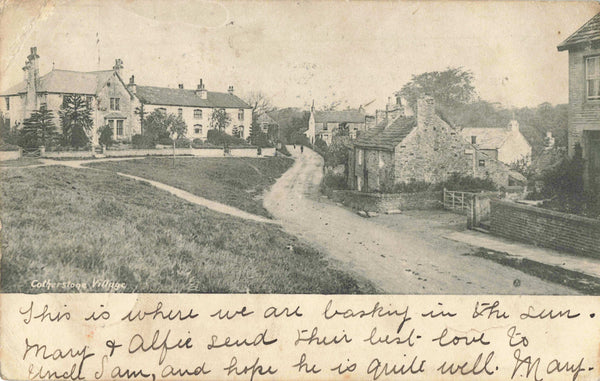 Cotherstone Village
This is where we are basking in the sun.
Mary & Alfie send their best love to
Uncle Sam, and hope he is quite well. Mary.